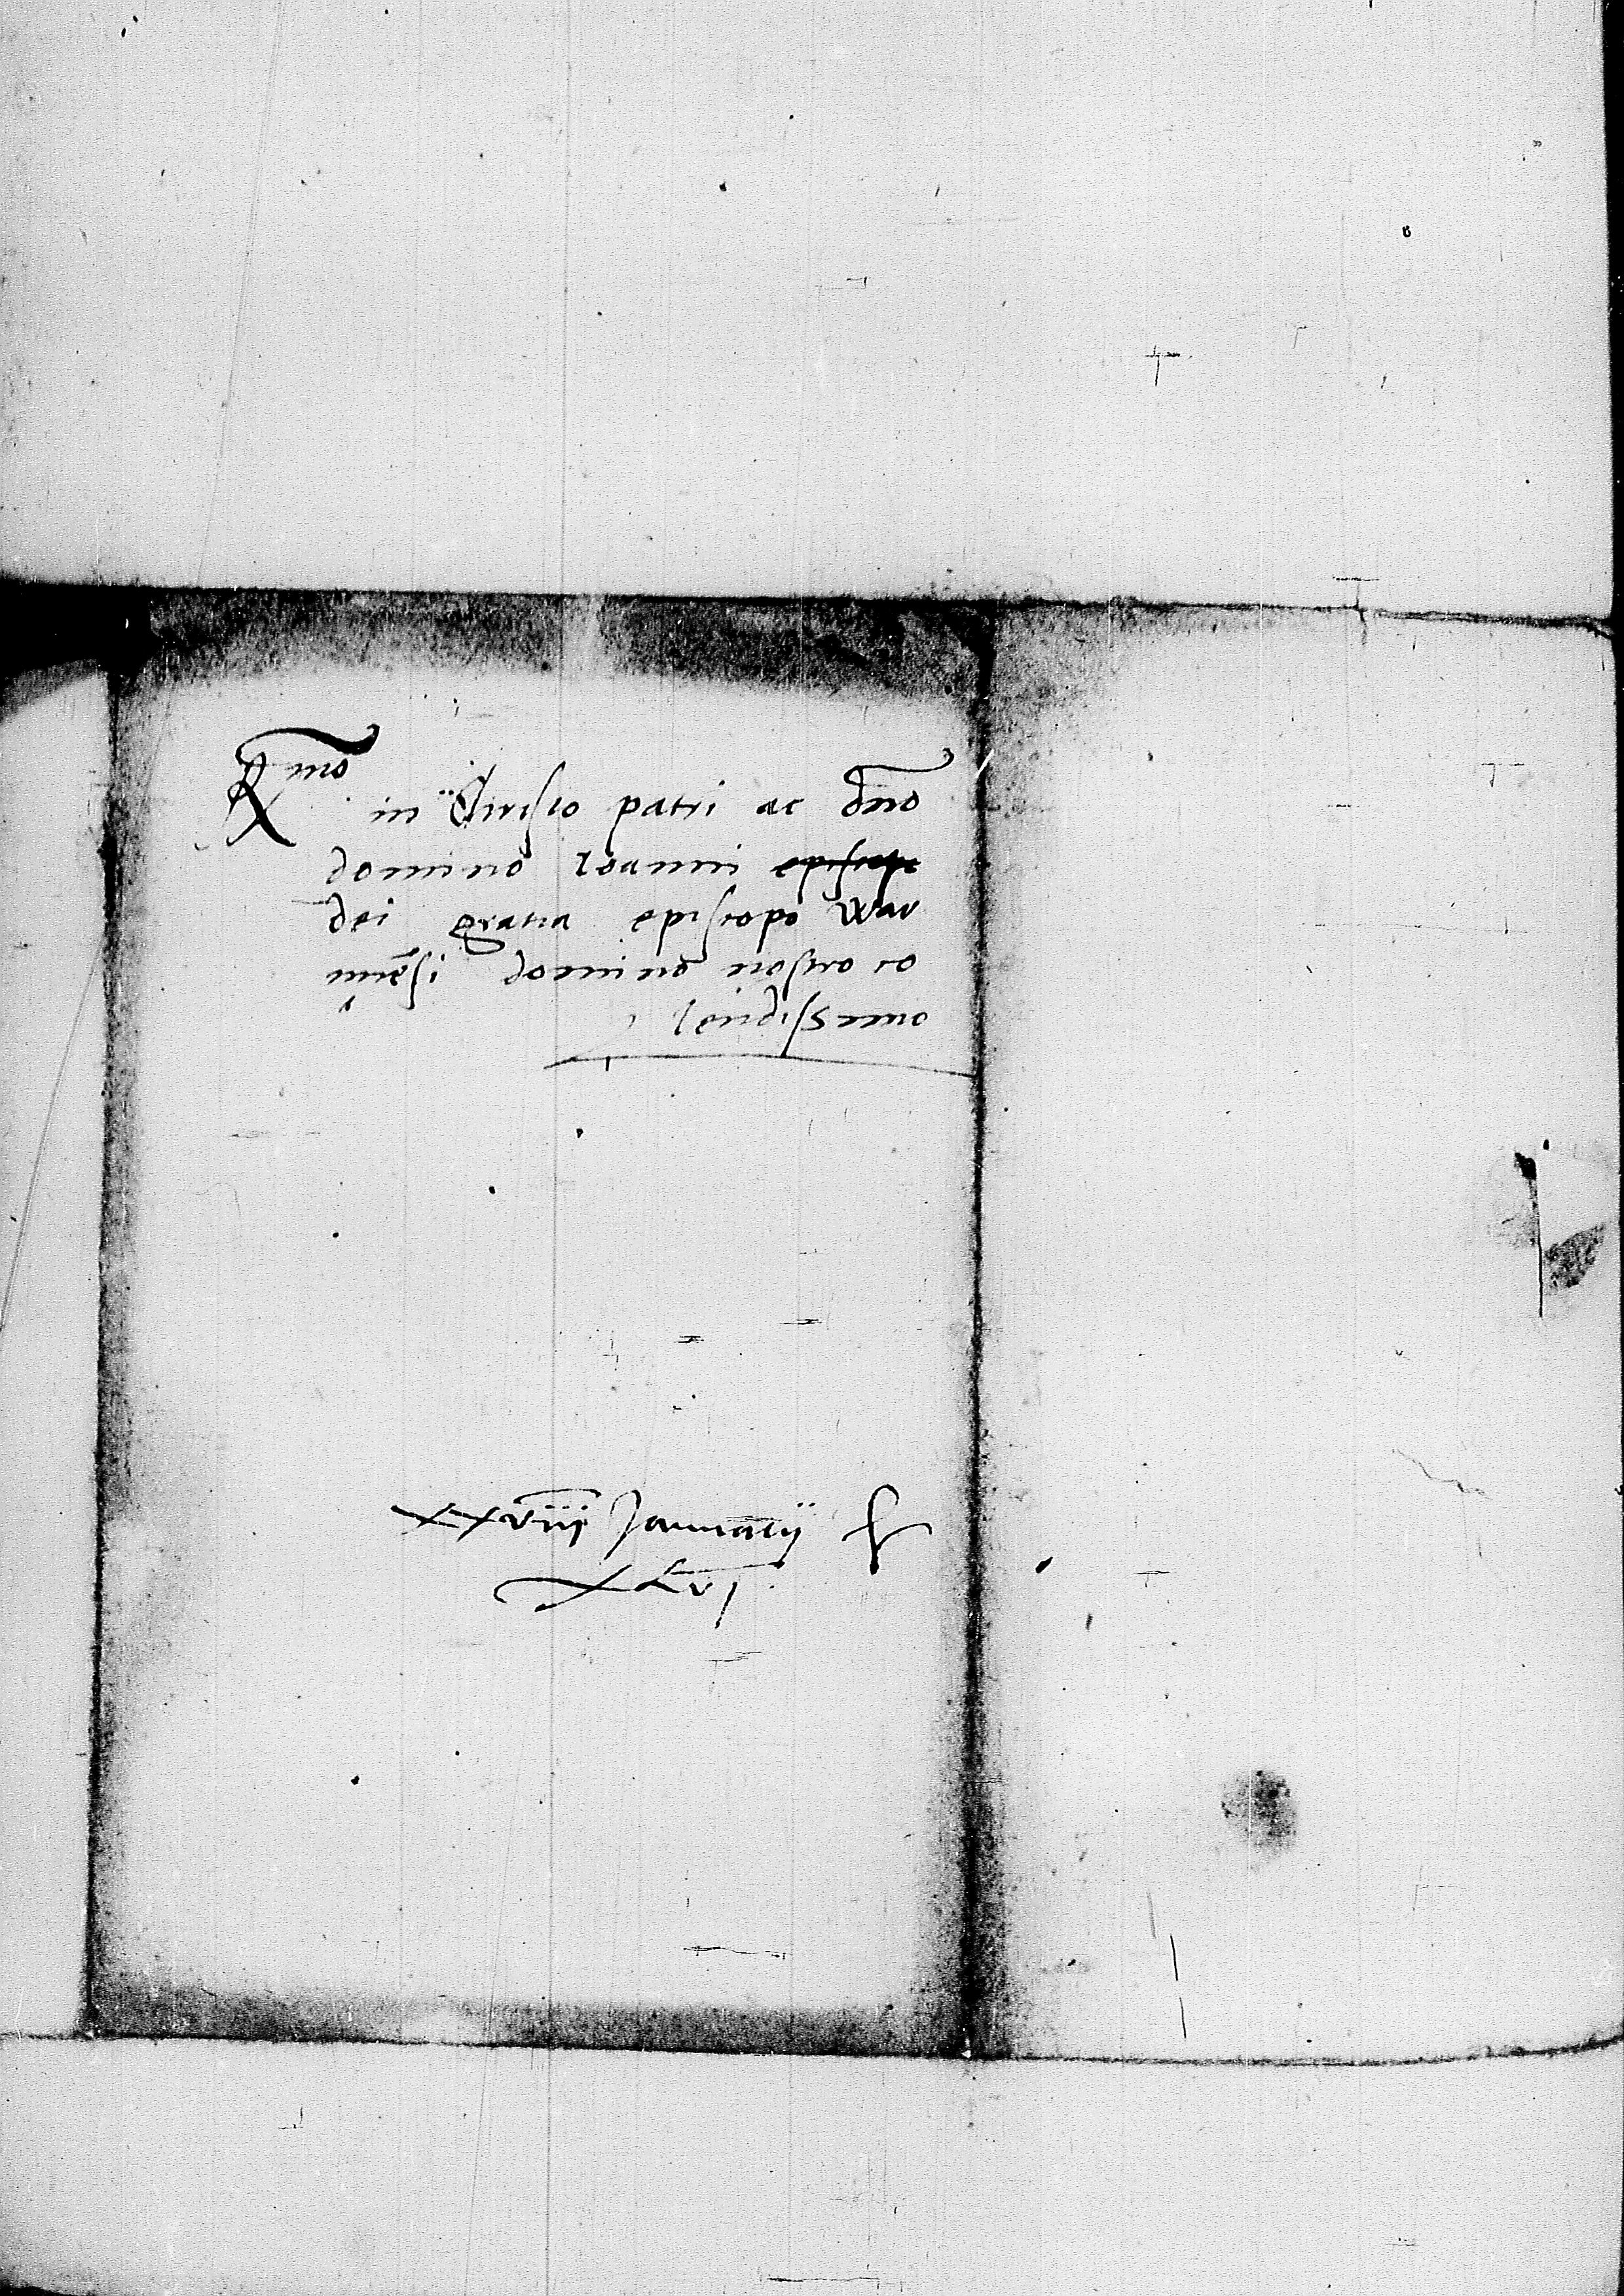 R̅mo in Christo patri ac d̅no
domino Ioanni ~~episcopo~~
dei gratia episcopo War
miēsi domino nostro co
lendissimo
xxviij Januarij
xLvj